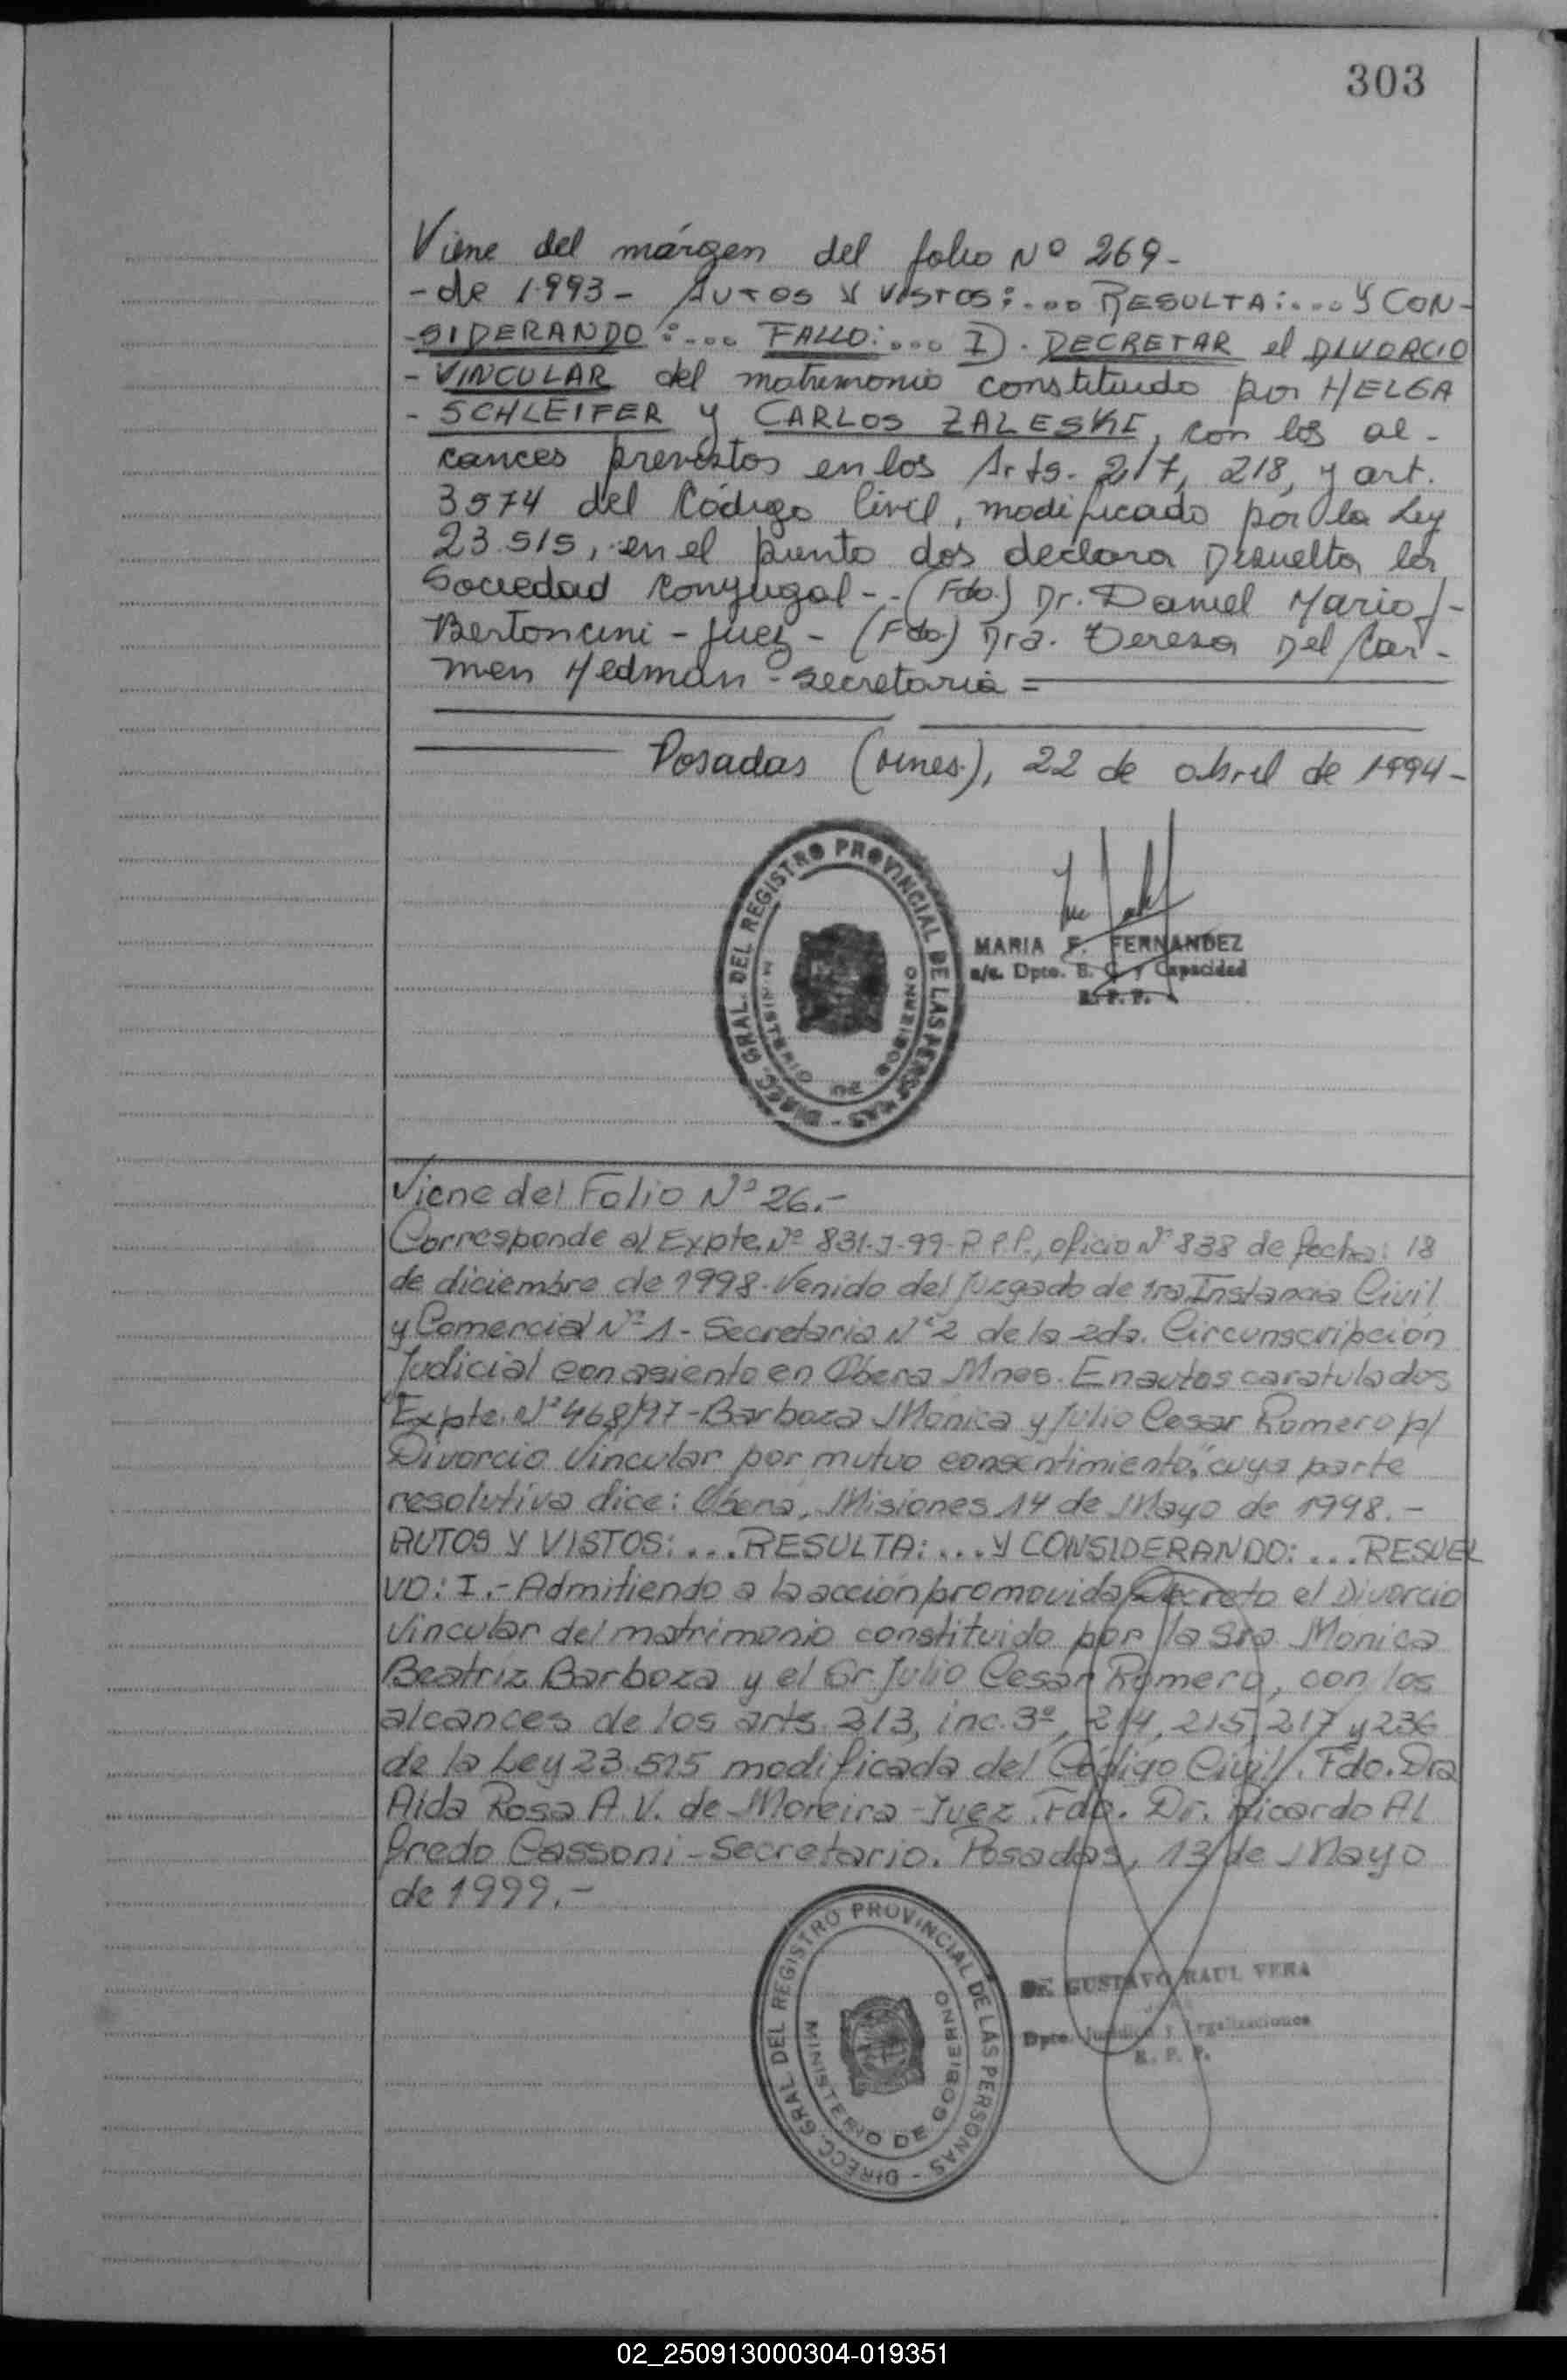 303
Viene del márgen del folio Nº 269-
-de 1993- AUTOS Y VISTOS:... RESULTA:... Y CON-
-SIDERANDO:... FALLO:... I). DECRETAR el DIVORCIO
-VINCULAR del matrimonio constituido por HELGA
- SCHLEIFER y CARLOS ZALESKI, con los al-
cances previstos en los Arts. 217, 218, y art.
3574 del Código Civil, modificado por la Ley
23.515, en el punto dos declara Disuelta la
Sociedad Conyugal-.-(Fdo.) Dr. Daniel Mario/-
Bertoncini - Juez - (Fdo.) Dra. Teresa Del Car-
men Hedman - Secretaria =
Posadas (Mnes.), 22 de abril de 1994-
DIRECC. GRAL. DEL REGISTRO PROVINCIAL DE LAS PERSONAS -
MINISTERIO DE GOBIERNO
MARIA F. FERNANDEZ
a/c. Dpto. E. C. y Capacidad
R. P. P.
Viene del Folio Nº 26.-
Corresponde al Expte. Nº 831-J-99-R.P.P., oficio Nº 838 de fecha: 18
de diciembre de 1998. Venido del Juzgado de 1ra Instancia Civil
y Comercial Nº 1 - Secretaria Nº 2 de la 2da. Circunscripción
Judicial con asiento en Oberá Mnes. En autos caratulados
"Expte. Nº 468/97 - Barboza Monica y Julio Cesar Romero p/
Divorcio Vincular por mutuo consentimiento", cuya parte
resolutiva dice: Oberá, Misiones 14 de Mayo de 1998.-
AUTOS Y VISTOS: ... RESULTA: ... Y CONSIDERANDO: ... RESUEL
VO: I.- Admitiendo a la acción promovida, Decreto el Divorcio
Vincular del matrimonio constituido por la Sra. Monica
Beatriz Barboza y el Sr. Julio Cesar Romero, con los
alcances de los arts. 213, inc. 3º, 214, 215, 217 y 236
de la Ley 23.515 modificada del Código Civil. Fdo. Dra
Aida Rosa A. V. de Moreira - Juez. Fdo. Dr. Ricardo Al
fredo Cassoni - Secretario. Posadas, 13 de Mayo
de 1999.-
DIRECC GRAL DEL REGISTRO PROVINCIAL DE LAS PERSONAS -
MINISTERIO DE GOBIERNO
Dr. GUSTAVO RAUL VERA
Dpto. Juridico y Legalizaciones
R. P. P.
02_250913000304-019351